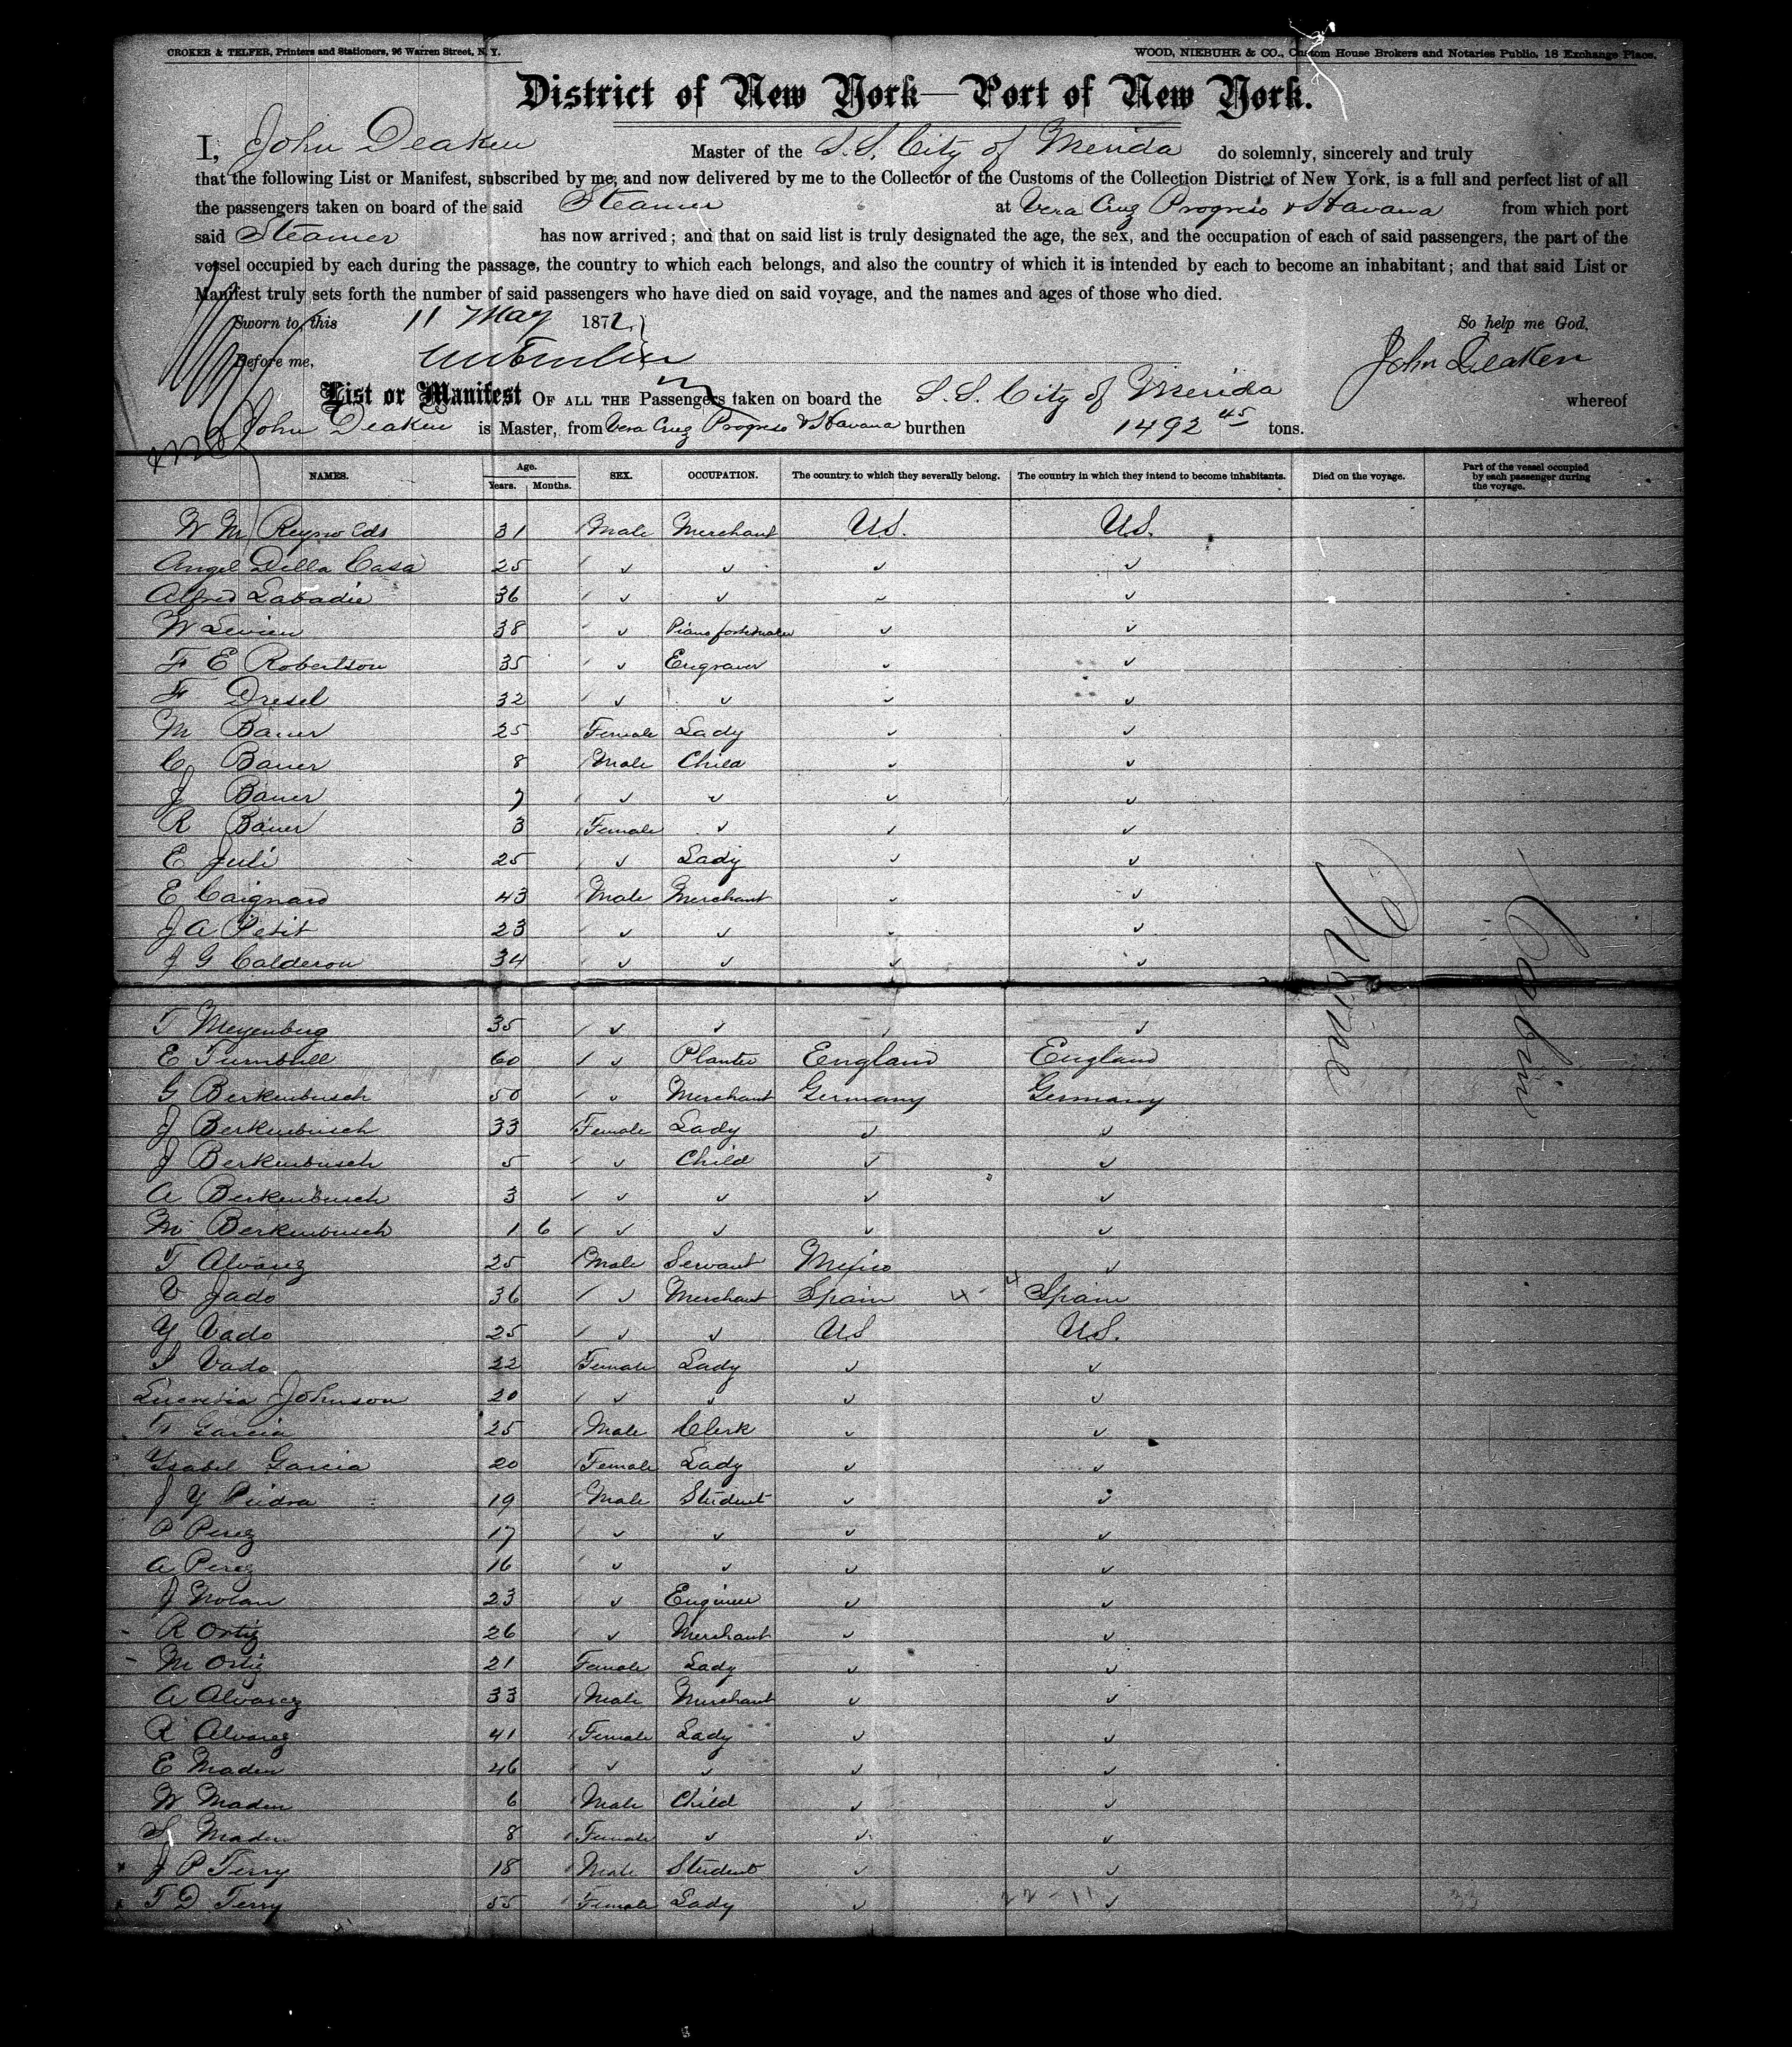 CROKER & TELFER, Printers and Stationers, 96 Warren Street, N. Y.
WOOD, NIEBUHR & CO., Custom House Brokers and Notaries Public, 18 Exchange Place.
District of New York—Port of New York.
I, John Deaken Master of the S.S. City of Merida do solemnly, sincerely and truly
that the following List or Manifest, subscribed by me, and now delivered by me to the Collector of the Customs of the Collection District of New York, is a full and perfect list of all
the passengers taken on board of the said Steamer at Vera Cruz Progreso & Havana from which port
said Steamer has now arrived; and that on said list is truly designated the age, the sex, and the occupation of each of said passengers, the part of the
vessel occupied by each during the passage, the country to which each belongs, and also the country of which it is intended by each to become an inhabitant; and that said List or
Manifest truly sets forth the number of said passengers who have died on said voyage, and the names and ages of those who died.
Sworn to, this 11 May 1872, So help me God,
Before me, John Deaken
List or Manifest OF ALL THE Passengers taken on board the S.S. City of Merida whereof
John Deaken is Master, from Vera Cruz Progreso & Havana burthen 1492 45 tons.
NAMES. Age. Years. Months. SEX. OCCUPATION. The country to which they severally belong. The country in which they intend to become inhabitants. Died on the voyage. Part of the vessel occupied by each passenger during the voyage.
W M Reynolds 31 Male Merchant US. US.
Angel Della Casa 25 ✓ ✓ ✓ ✓
Alfred Labadie 36 ✓ ✓ ✓ ✓
W Levien 38 ✓ Pianofortemaker ✓ ✓
F E Robertson 35 ✓ Engraver ✓ ✓
F Dresel 32 ✓ ✓ ✓ ✓
M Bauer 25 Female Lady ✓ ✓
C Bauer 8 Male Child ✓ ✓
J Bauer 7 ✓ ✓ ✓ ✓
R Bauer 3 Female ✓ ✓ ✓
E Juli 25 ✓ Lady ✓ ✓
E Caignard 43 Male Merchant ✓ ✓
J A Petit 23 ✓ ✓ ✓ ✓
J G Calderon 34 ✓ ✓ ✓ ✓
None
Cabin
T Meyenberg 35 ✓ ✓ ✓
E Turnbull 60 ✓ Planter England England
G Berkenbusch 50 ✓ Merchant Germany Germany
J Berkenbusch 33 Female Lady ✓ ✓
J Berkenbusch 5 ✓ Child ✓ ✓
A Berkenbusch 3 ✓ ✓ ✓ ✓
M Berkenbusch 1 6 ✓ ✓ ✓ ✓
T Alvarez 25 Male Servant Mexico ✓
V Jado 36 ✓ Merchant Spain Spain
Y Vado 25 ✓ ✓ US US.
S Vado 22 Female Lady ✓ ✓
Lucretia Johnson 20 ✓ ✓ ✓ ✓
F Garcia 25 Male Clerk ✓ ✓
Ysabel Garcia 20 Female Lady ✓ ✓
J Y Piedra 19 Male Student ✓ ✓
P Perez 17 ✓ ✓ ✓ ✓
A Perez 16 ✓ ✓ ✓ ✓
J Nolan 23 ✓ Engineer ✓ ✓
R Ortiz 26 ✓ Merchant ✓ ✓
M Ortiz 21 Female Lady ✓ ✓
A Alvarez 33 Male Merchant ✓ ✓
R Alvarez 41 Female Lady ✓ ✓
E Maden 46 ✓ ✓ ✓ ✓
W Maden 6 Male Child ✓ ✓
S Maden 8 Female ✓ ✓ ✓
J P Terry 18 Male Student ✓ ✓
T D Terry 55 Female Lady ✓ 22-11 ✓ 33